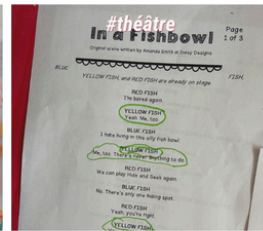 #théâtre
Page
1 of 3
In a Fishbowl
Original drama written by Amanda Smith at Daisy Designs
BLUE FISH,
YELLOW FISH, and RED FISH are already on stage
RED FISH
I'm bored again.
YELLOW FISH
Yeah. Me, too.
BLUE FISH
I hate living in this silly fish bowl.
YELLOW FISH
Me, too. There's never anything to do.
RED FISH
We can play Hide and Seek again.
BLUE FISH
No. There's only one hiding spot.
RED FISH
Yeah, you're right.
YELLOW FISH